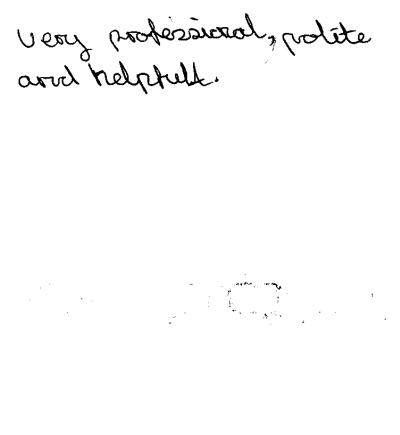 very professional, polite
and helpfull.